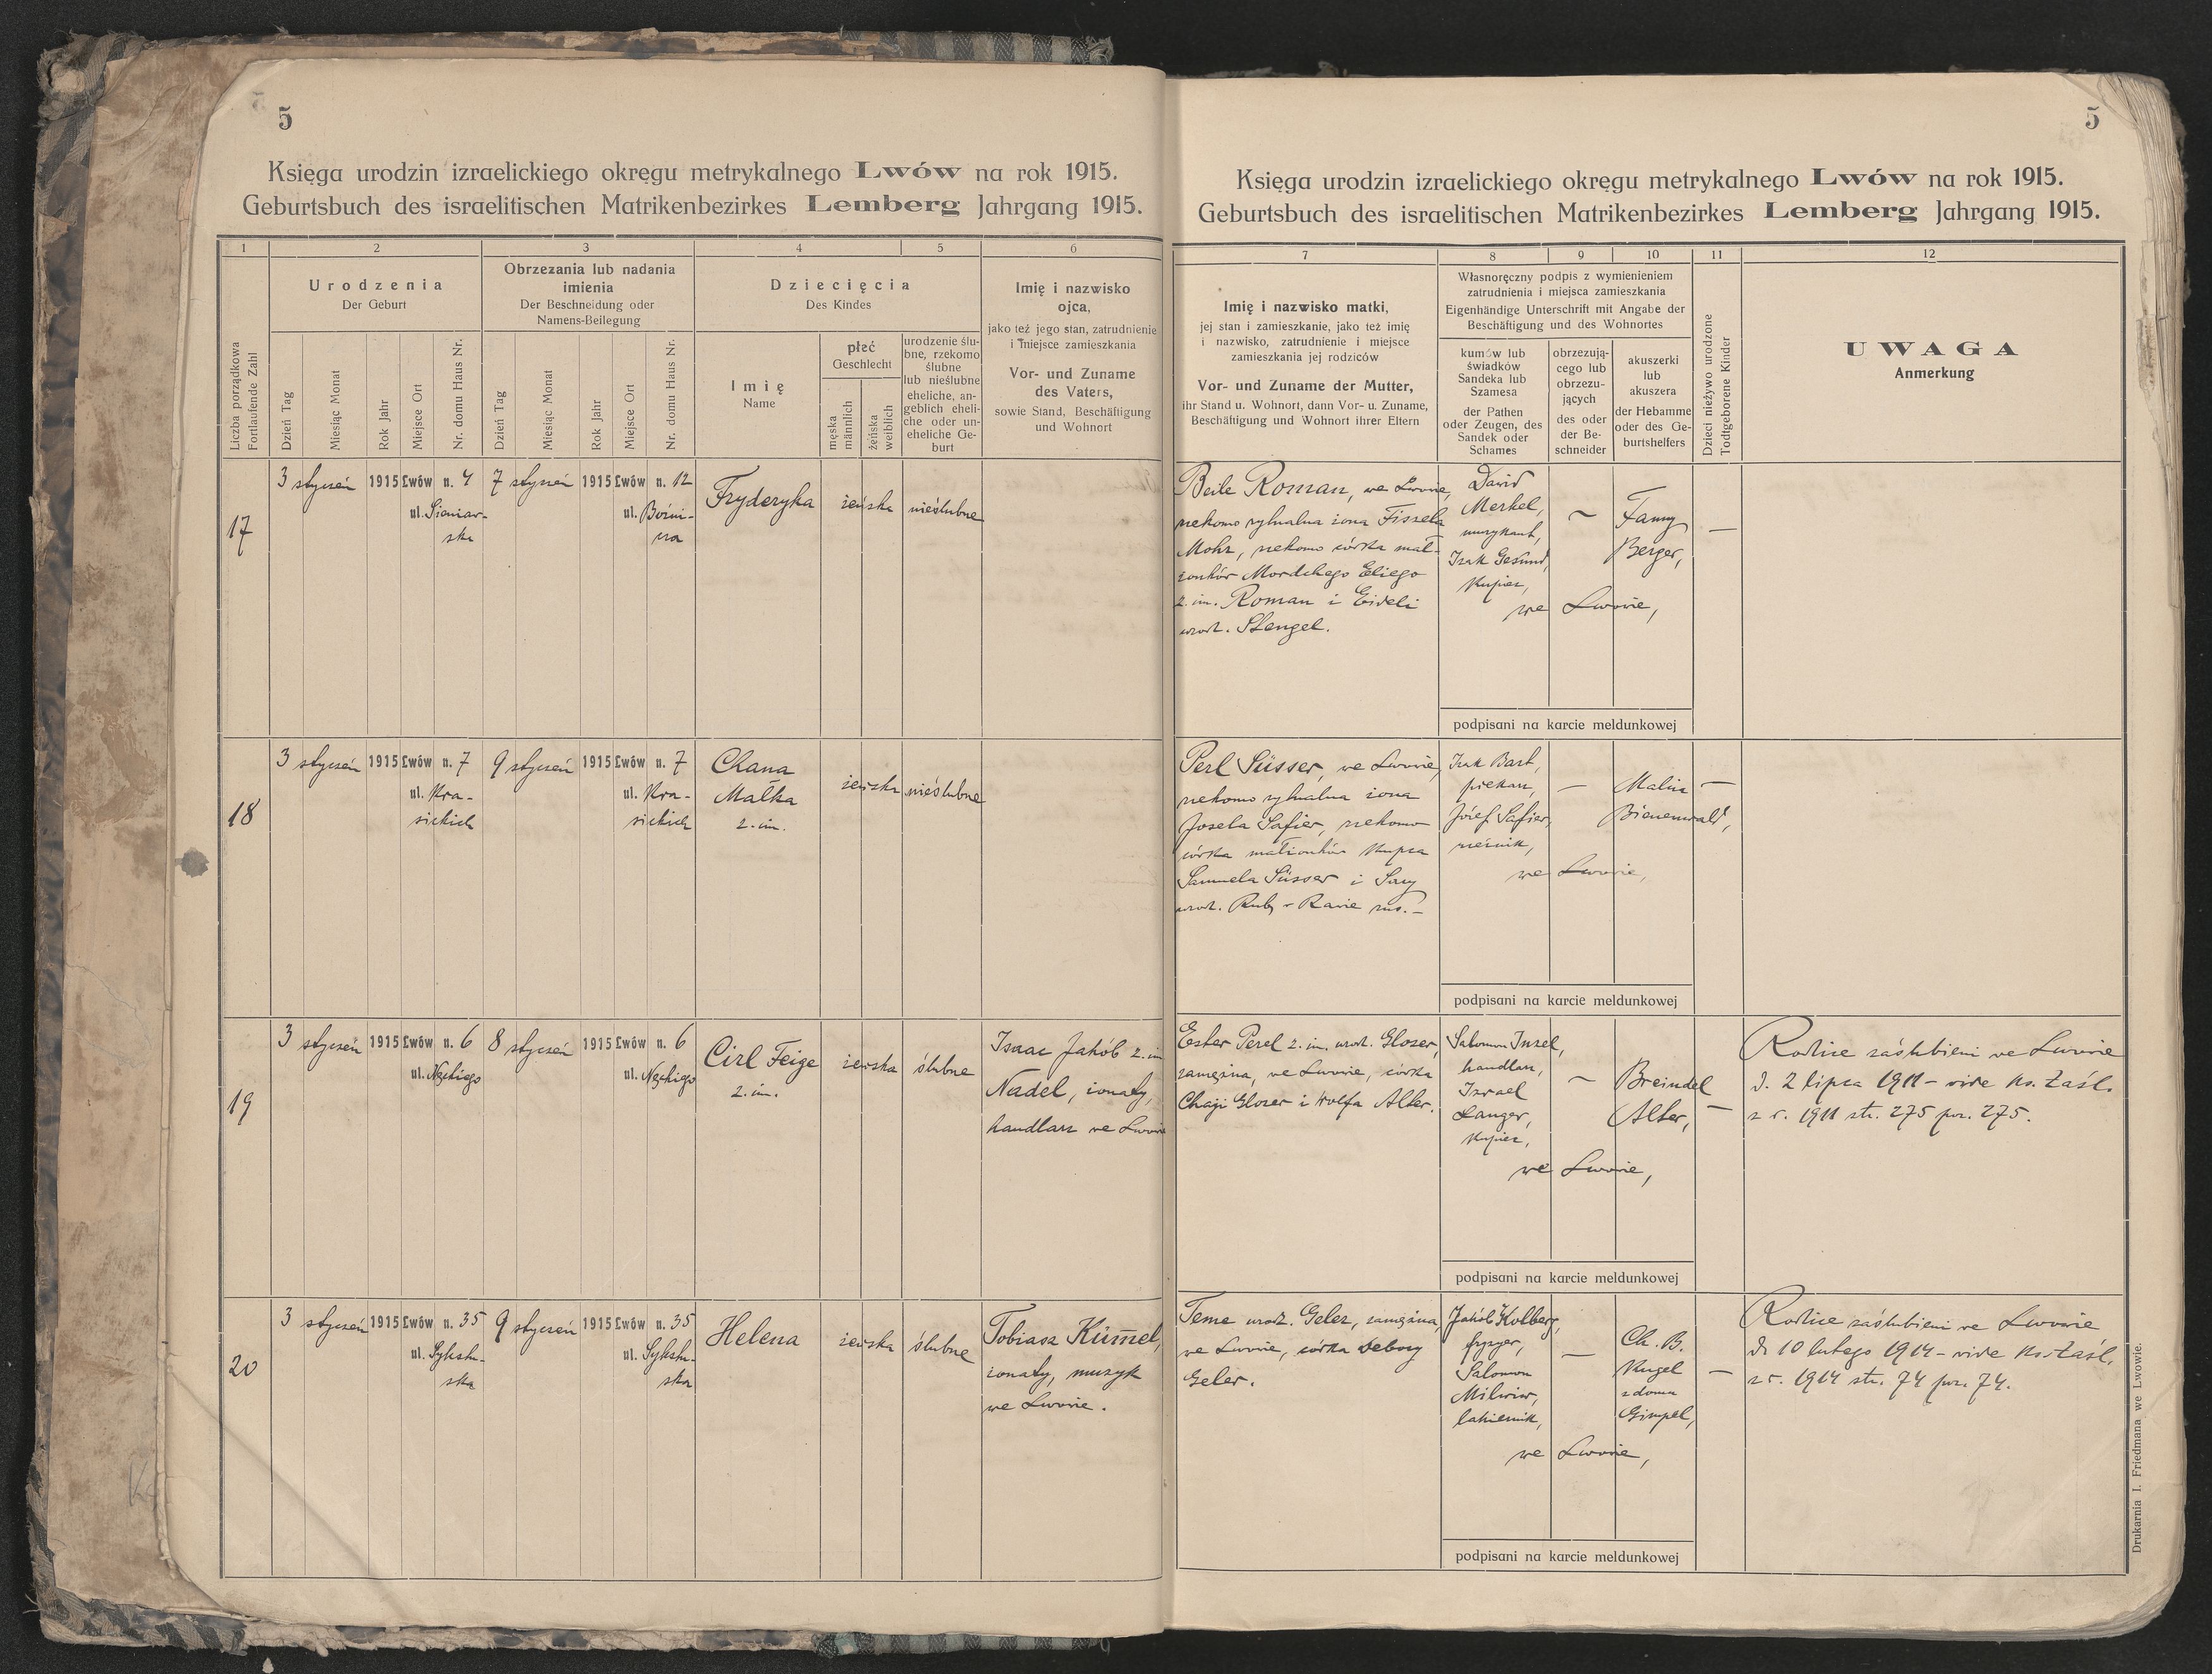 5
Księga urodzin izraelickiego okręgu metrykalnego Lwów na rok 1915.
Geburtsbuch des israelitischen Matrikenbezirkes Lemberg Jahrgang 1915.
1
2
3
4
5
6
Liczba porządkowa
Fortlaufende Zahl
Urodzenia
Der Geburt
Dzień Tag
Miesiąc Monat
Rok Jahr
Miejsce Ort
Nr. domu Haus Nr.
Obrzezania lub nadania
imienia
Der Beschneidung oder
Namens-Beilegung
Dzień Tag
Miesiąc Monat
Rok Jahr
Miejsce Ort
Nr. domu Haus Nr.
Dziecięcia
Des Kindes
Imię
Name
płeć
Geschlecht
męska
männlich
żeńska
weiblich
urodzenie ślu-
bne, rzekomo
ślubne
lub nieślubne
eheliche, an-
geblich eheli-
che oder un-
eheliche Ge-
burt
Imię i nazwisko
ojca,
jako też jego stan, zatrudnienie
i miejsce zamieszkania
Vor- und Zuname
des Vaters,
sowie Stand, Beschäftigung
und Wohnort
17
3 styczeń 1915 Lwów n. 4
ul. Sieniaw-
ska
7 styczeń 1915 Lwów n. 12
ul. Bożni-
cza
Fryderyka
żeńska
nieślubne
18
3 styczeń 1915 Lwów n. 7
ul. Kra-
sickich
9 styczeń 1915 Lwów n. 7
ul. Kra-
sickich
Chana
Małka
2. im.
żeńska
nieślubne
19
3 styczeń 1915 Lwów n. 6
ul.
8 styczeń 1915 Lwów n. 6
ul.
Cirl Feige
2. im.
żeńska
ślubne
Isaac Jakób 2. im
Nadel, żonaty,
handlarz we Lwowie
20
3 styczeń 1915 Lwów n. 35
ul. Sykstu-
ska
9 styczeń 1915 Lwów n. 35
ul. Sykstu-
ska
Helena
żeńska
ślubne
Tobiasz Küm̅el,
żonaty, muzyk
we Lwowie.
5
Księga urodzin izraelickiego okręgu metrykalnego Lwów na rok 1915.
Geburtsbuch des israelitischen Matrikenbezirkes Lemberg Jahrgang 1915.
7
8
9
10
11
12
Imię i nazwisko matki,
jej stan i zamieszkanie, jako też imię
i nazwisko, zatrudnienie i miejsce
zamieszkania jej rodziców
Vor- und Zuname der Mutter,
ihr Stand u. Wohnort, dann Vor- u. Zuname,
Beschäftigung und Wohnort ihrer Eltern
Własnoręczny podpis z wymienieniem
zatrudnienia i miejsca zamieszkania
Eigenhändige Unterschrift mit Angabe der
Beschäftigung und des Wohnortes
kumów lub
świadków
Sandeka lub
Szamesa
der Pathen
oder Zeugen, des
Sandek oder
Schames
obrzezują-
cego lub
obrzezu-
jących
des oder
der Be-
schneider
akuszerki
lub
akuszera
der Hebamme
oder des Ge-
burtshelfers
Dzieci nieżywo urodzone
Todtgeborene Kinder
UWAGA
Anmerkung
Beile Roman, we Lwowie,
rzekomo rytualna żona Fissela
Mohr, rzekomo córka mał-
żonków Mordchego Eliego
2. im. Roman i Eideli
urodz. Stengel.
Dawid
Merkel,
muzykant,
Izak Gesund,
kupiec,
~
Fanny
Berger,
—
we Lwowie,
podpisani na karcie meldunkowej
Perl Süsser, we Lwowie,
rzekomo rytualna żona
Josela Safier, rzekomo
córka małżonków kupca
Samuela Süsser i Sary
urodz. Ruby w Rawie rus. –
Izak Bart,
piekarz,
Józef Safier,
rzeźnik,
—
Malia —
Bienenwald,
we Lwowie,
podpisani na karcie meldunkowej
Ester Perel 2. im. urodz. Gloser,
zamężna, we Lwowie, córka
Chaji Gloser i Wolfa Alter.
Salomon Insel,
handlarz,
Israel
Langer,
kupiec,
~
Breindel
Alter, —
we Lwowie,
podpisani na karcie meldunkowej
Rodzice zaślubieni we Lwowie
d. 2 lipca 1911 – vide ks. zaśl.
z r. 1911 str. 275 poz. 275.
Teme urodz. Geler, zamężna,
we Lwowie, córka Debory
Geler.
Jakób Kolberg,
fryzyer,
Salomon
Milwiw,
lakiernik,
—
Ch. B.
Kugel
z domu
Gimpel,
—
we Lwowie,
podpisani na karcie meldunkowej
Rodzice zaślubieni we Lwowie
d. 10 lutego 1914 – vide ks. zaśl.
z r. 1914 str. 74 poz. 74.
Drukarnia I. Friedmana we Lwowie.